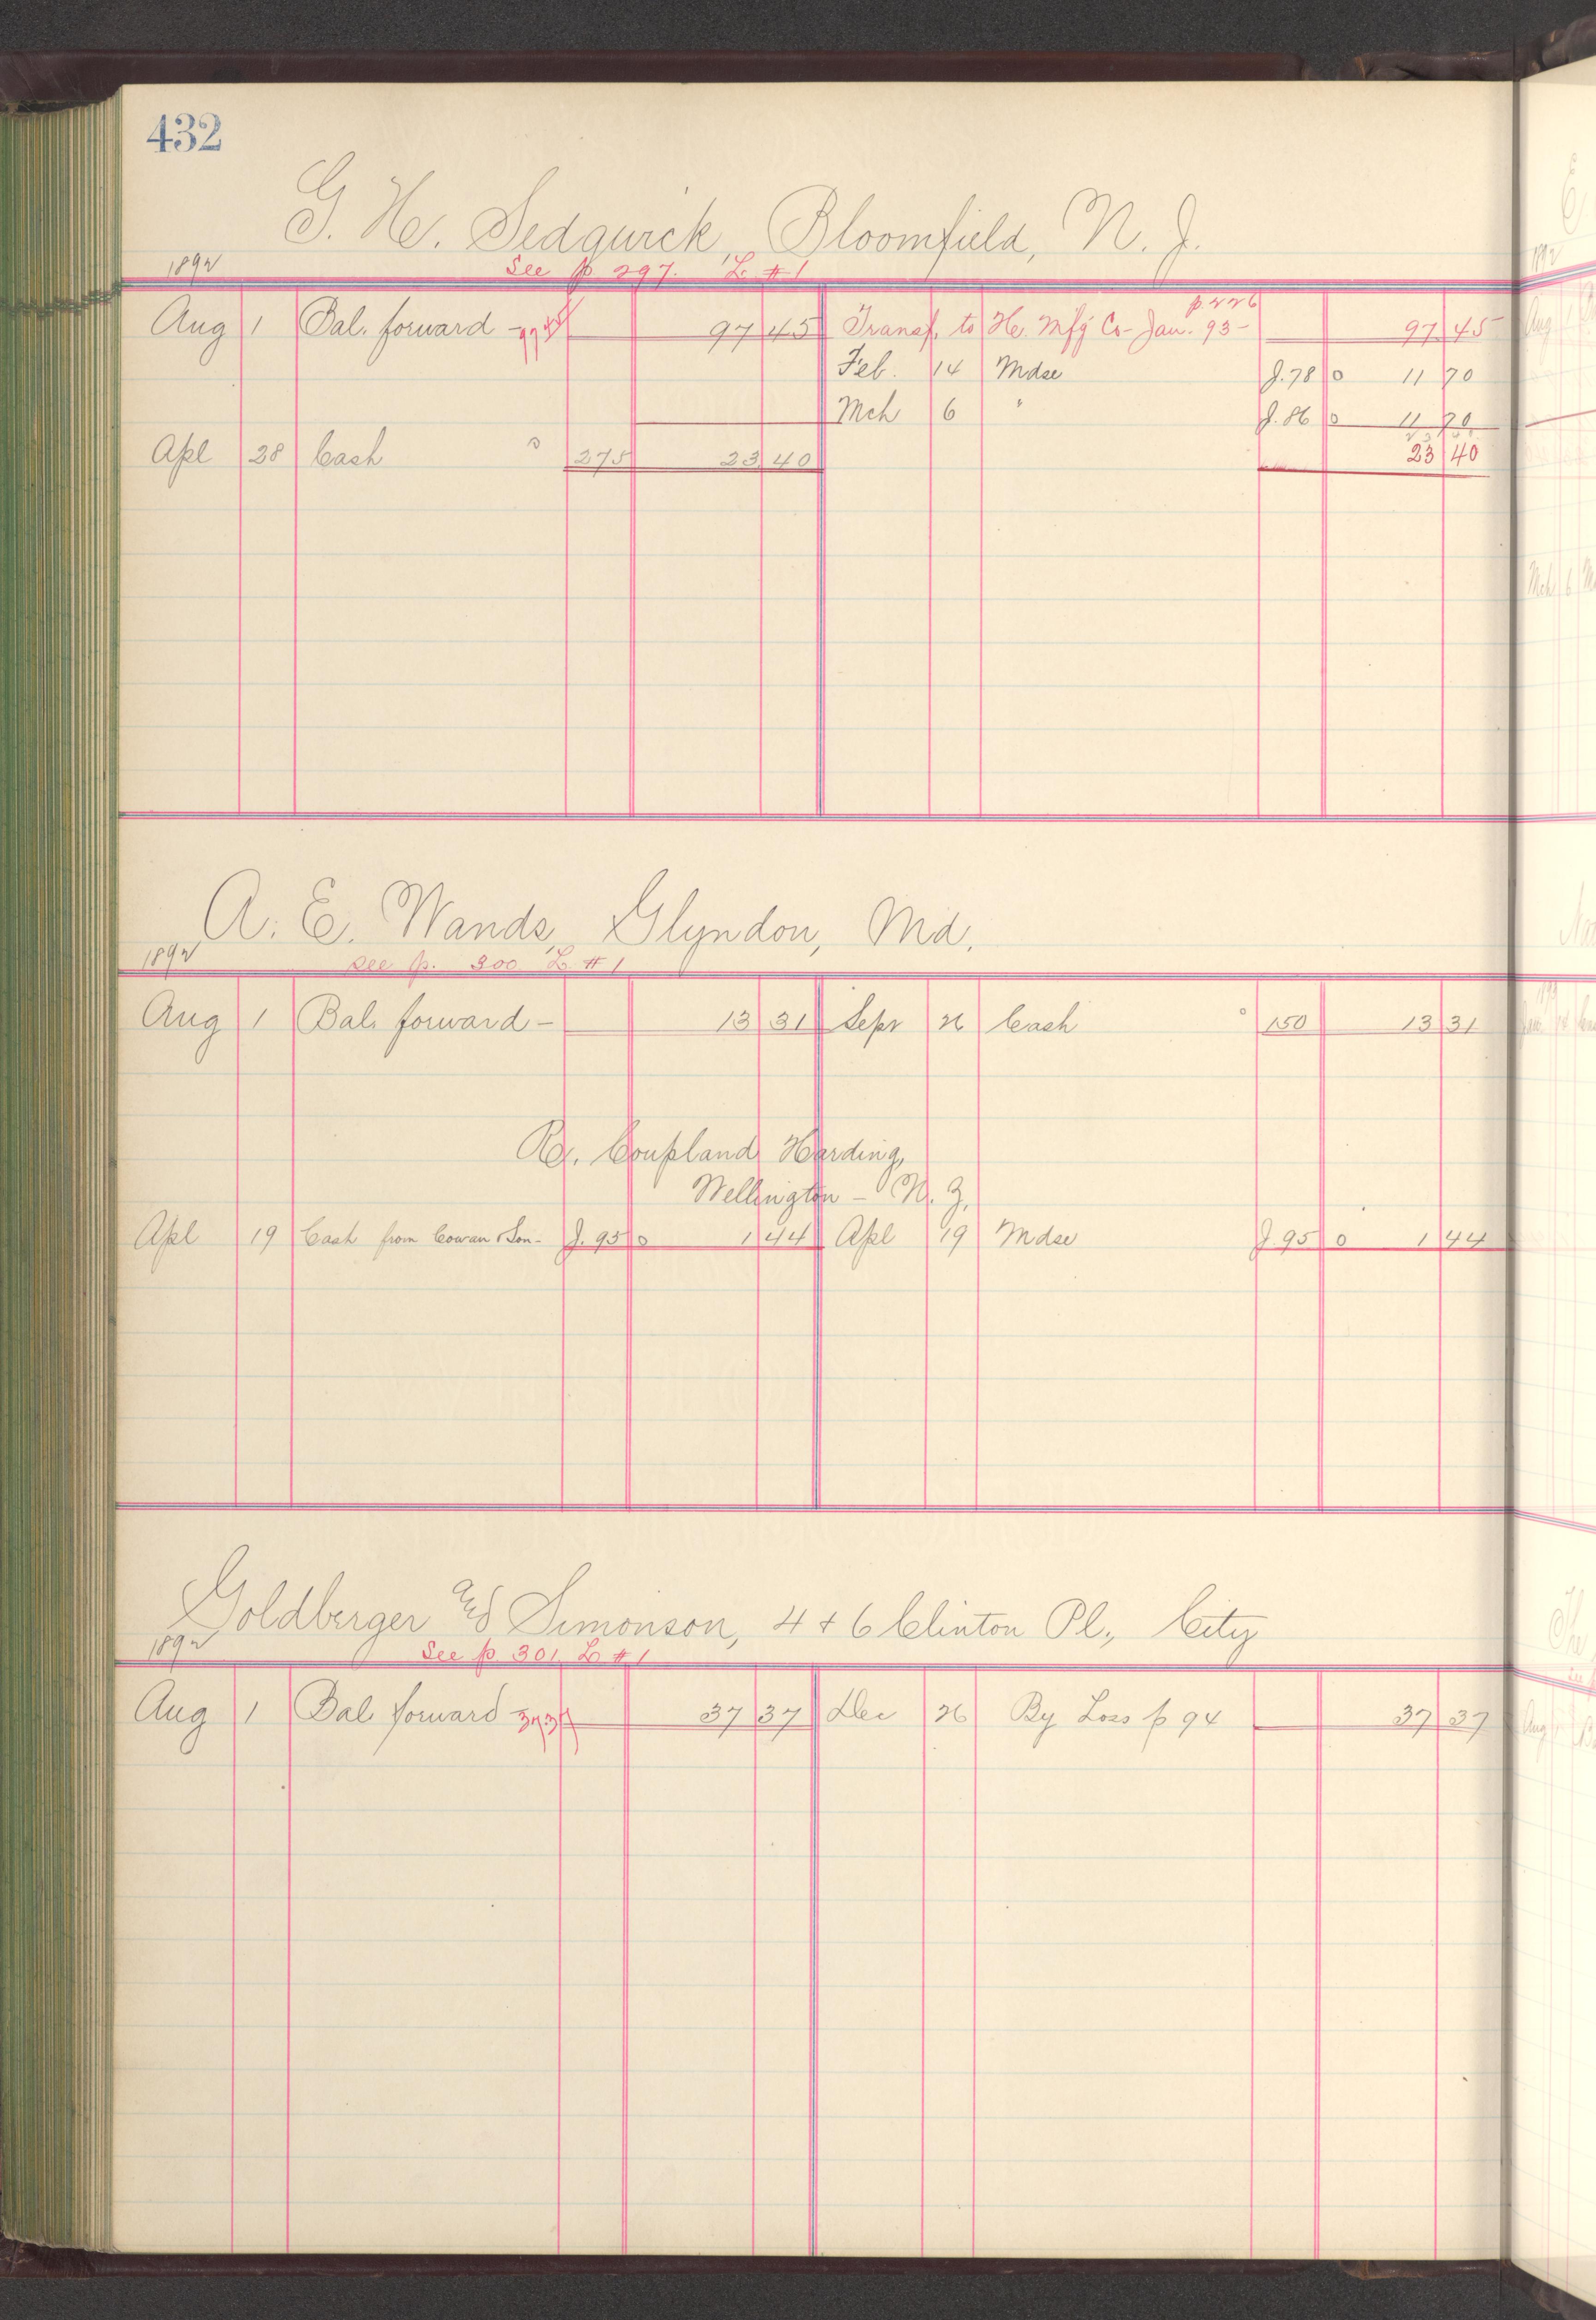 432
G. H. Sedgwick, Bloomfield, N. J.
1892 See p 297. L #1
p 226
Aug 1 Bal. forward - 97 45 97 45 Transf. to H. Mfg Co - Jan. 93 - 97 45
Feb. 14 Mdse J. 78 0 11 70
Mch 6 " J. 86 0 11 70
Apl 28 Cash 275 23 40 23 40
A. E. Wands, Glyndon, Md.
1892 See p. 300 L #1
Aug 1 Bal. forward - 13 31 Sepr 26 Cash 150 13 31
R. Coupland Harding,
Wellington - N. Z.
Apl 19 Cash from Cowan & Son - J. 95 0 1 44 Apl 19 Mdse J. 95 0 1 44
Goldberger and Simonson, 4 + 6 Clinton Pl., City
1892 See p 301 L #1
Aug 1 Bal. forward 37 37 37 37 Dec 26 By Loss p 94 37 37